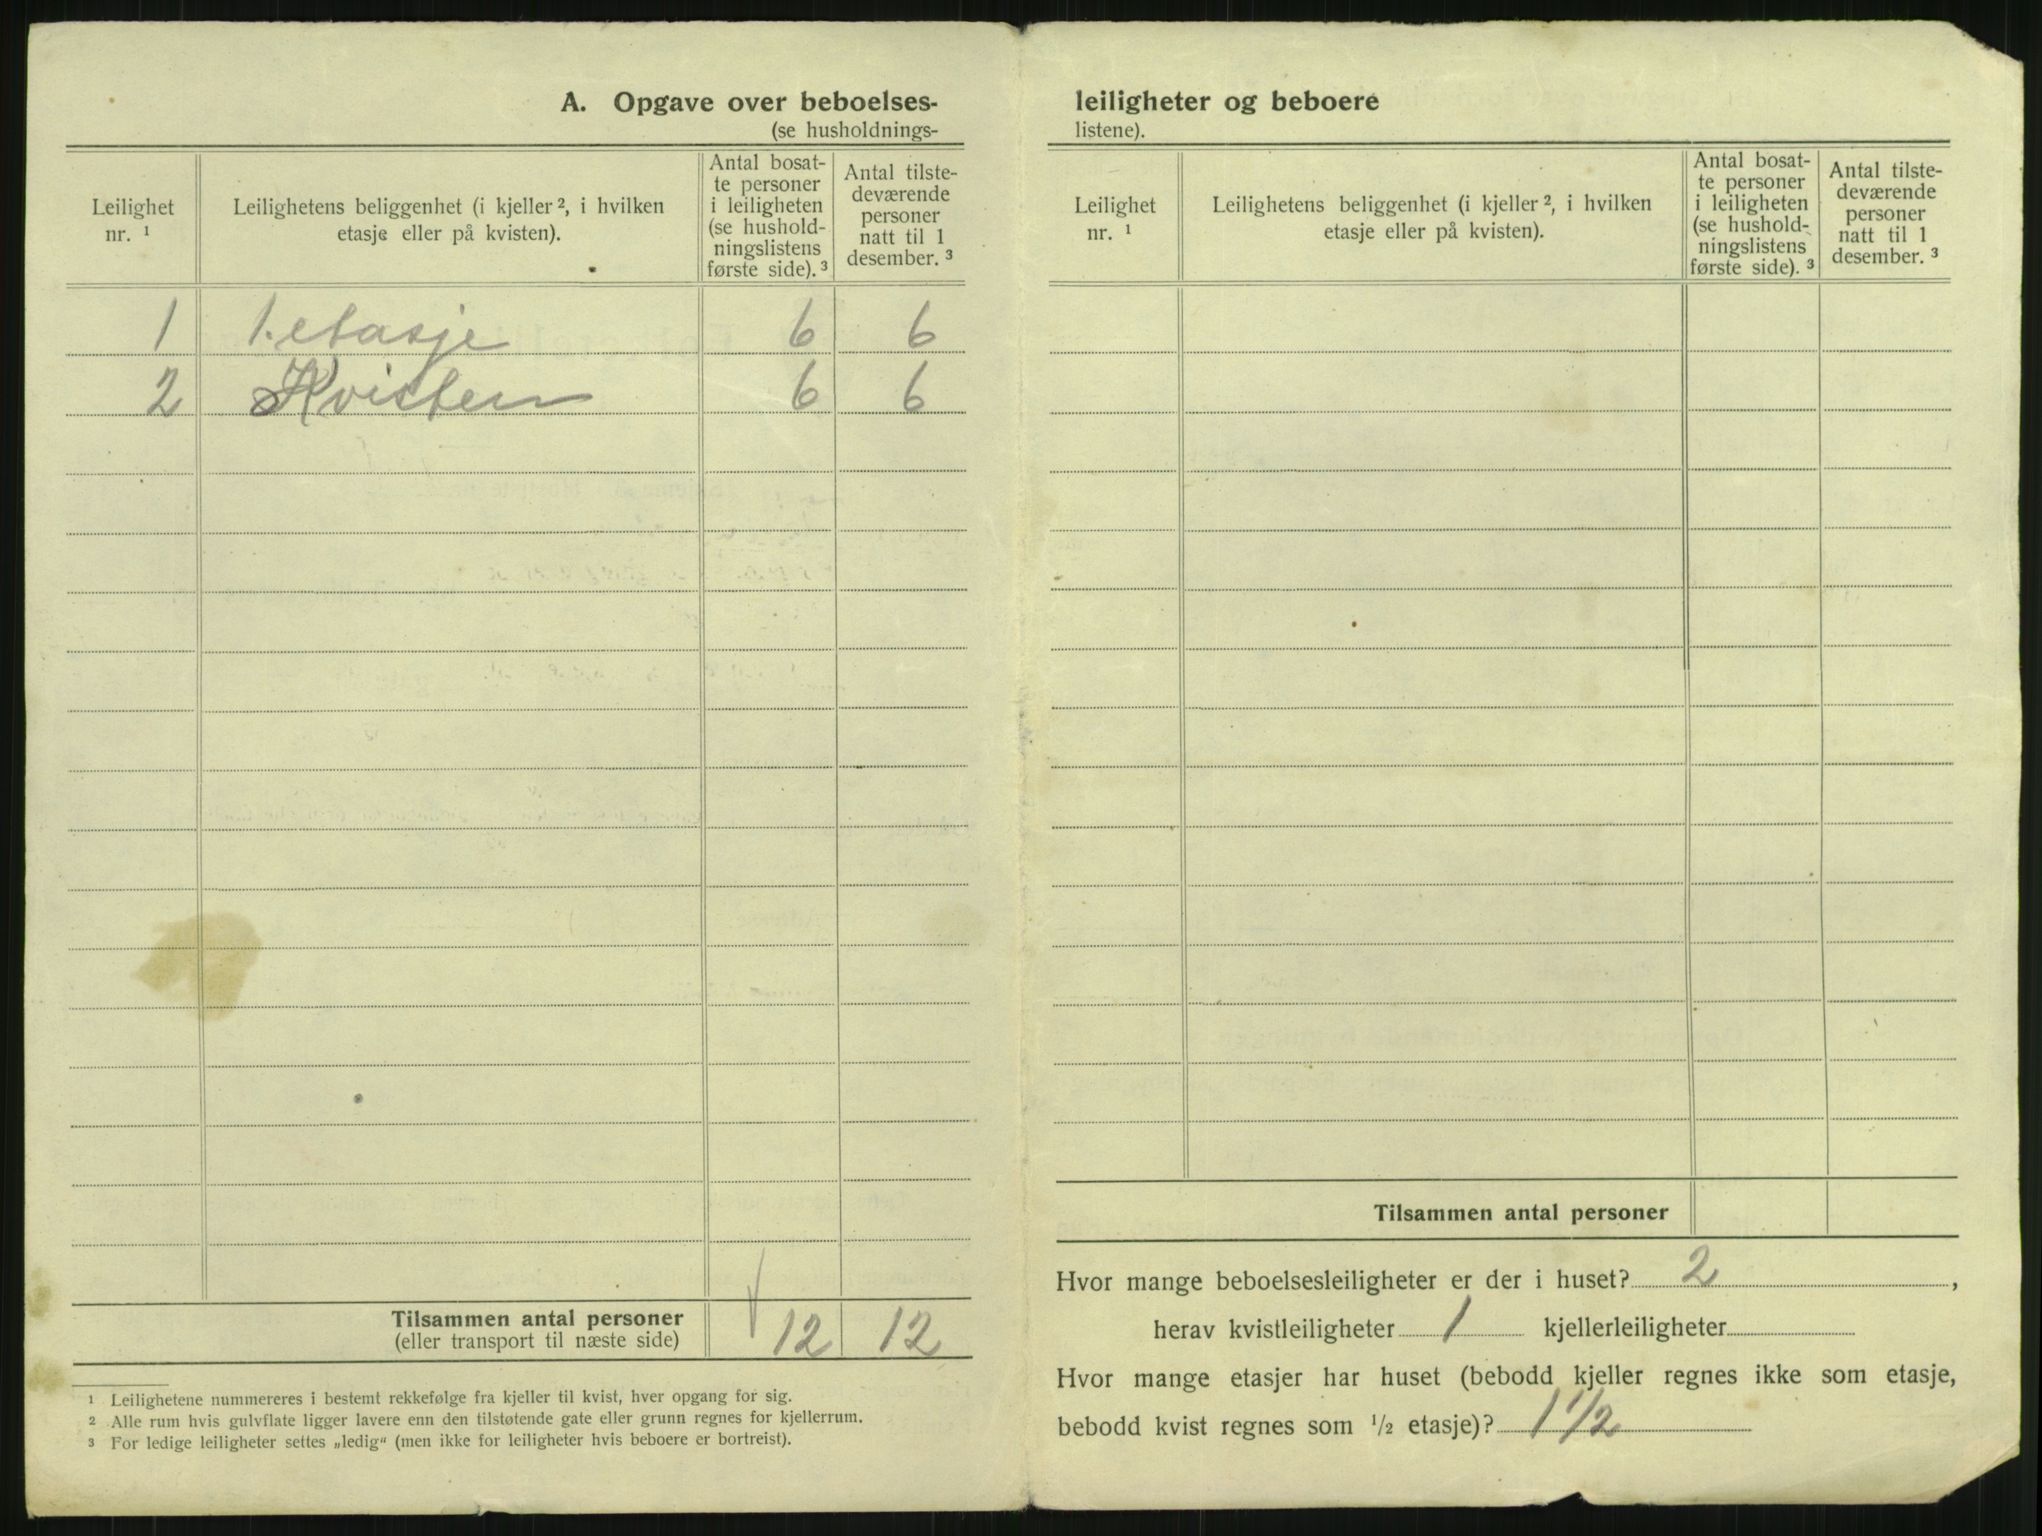 A. Opgave over beboelses-
(se husholdnings-
Leilighet
nr. ¹
Leilighetens beliggenhet (i kjeller ², i hvilken
etasje eller på kvisten).
Antal bosat-
te personer
i leiligheten
(se hushold-
ningslistens
første side). ³
Antal tilste-
deværende
personer
natt til 1
desember. ³
1 1. etasje 6 6
2 Kvisten 6 6
Tilsammen antal personer
(eller transport til næste side) 12 12
¹ Leilighetene nummereres i bestemt rekkefølge fra kjeller til kvist, hver opgang for sig.
² Alle rum hvis gulvflate ligger lavere enn den tilstøtende gate eller grunn regnes for kjellerrum.
³ For ledige leiligheter settes „ledig“ (men ikke for leiligheter hvis beboere er bortreist).
leiligheter og beboere
listene).
Leilighet
nr. ¹
Leilighetens beliggenhet (i kjeller ², i hvilken
etasje eller på kvisten).
Antal bosat-
te personer
i leiligheten
(se hushold-
ningslistens
første side). ³
Antal tilste-
deværende
personer
natt til 1
desember. ³
Tilsammen antal personer
Hvor mange beboelsesleiligheter er der i huset? 2 ,
herav kvistleiligheter 1 kjellerleiligheter
Hvor mange etasjer har huset (bebodd kjeller regnes ikke som etasje,
bebodd kvist regnes som ½ etasje)? 1 1/2